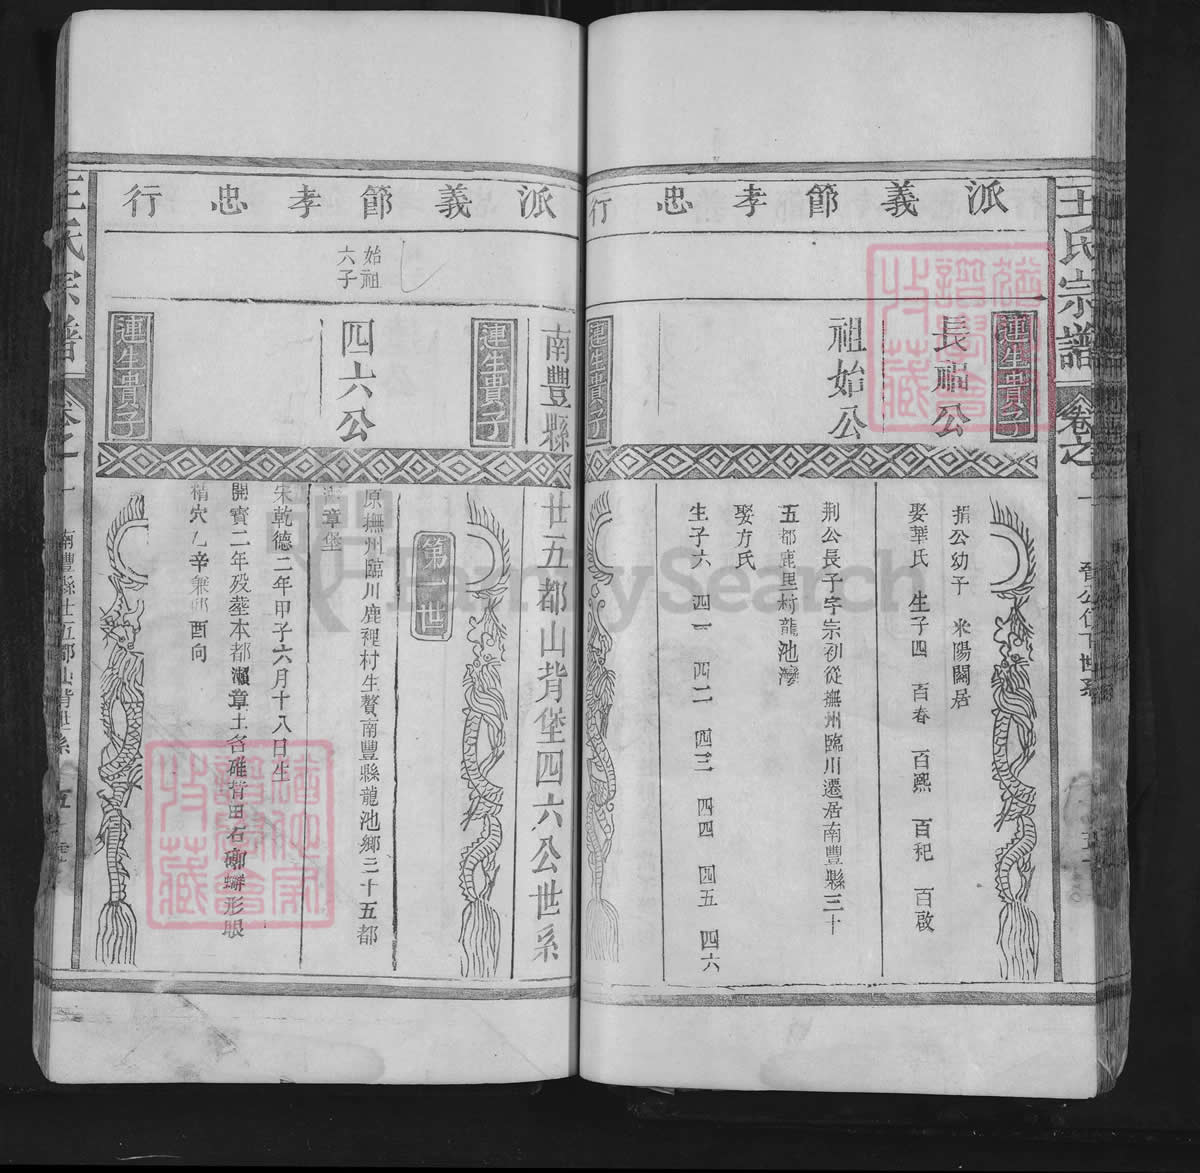 王氏宗譜
卷之一
派義節孝忠行
連生貴子
長福公
捐公幼子
娶華氏 生子四 百春 百熙 百祀 百啟
祖始公
荆公長子字宗初從撫州臨川遷居南豐縣三十
五都鹿里村龍池灣
娶方氏
生子六 四一 四二 四三 四四 四五 四六
連生貴子
派義節孝忠行
南豐縣
廿五都山背堡四六公世系
連生貴子
第一世
始祖
六子
四六公
原撫州臨川鹿裡村生贅南豐縣龍池鄉三十五都
章堡
宋乾德二年甲子六月十八日生
開寶二年殁塟本都瀨章土名碓背田石形眼
精穴乙辛兼卯酉向
連生貴子
王氏宗譜
卷之一
南豐縣廿五都山背世系
FamilySearch